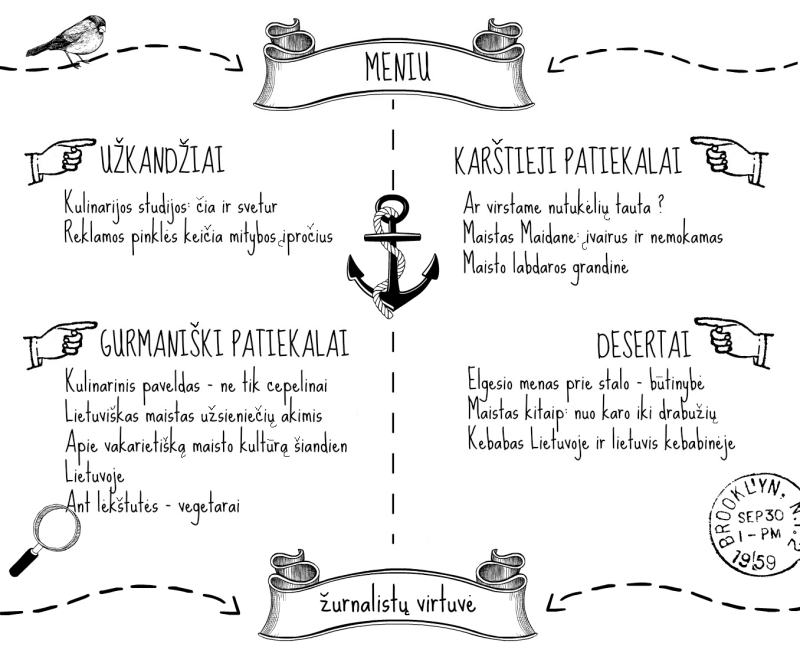 MENIU
UŽKANDŽIAI
Kulinarijos studijos: čia ir svetur
Reklamos pinklės keičia mitybos įpročius
KARŠTIEJI PATIEKALAI
Ar virstame nutukėlių tauta ?
Maistas Maidane: įvairus ir nemokamas
Maisto labdaros grandinė
GURMANIŠKI PATIEKALAI
Kulinarinis paveldas - ne tik cepelinai
Lietuviškas maistas užsieniečių akimis
Apie vakarietišką maisto kultūrą šiandien
Lietuvoje
Ant lėkštutės - vegetarai
DESERTAI
Elgesio menas prie stalo - būtinybė
Maistas kitaip: nuo karo iki drabužių
Kebabas Lietuvoje ir lietuvis kebabinėje
BROOKLYN, N.Y. 2
SEP 30
1 - PM
1959
žurnalistų virtuvė